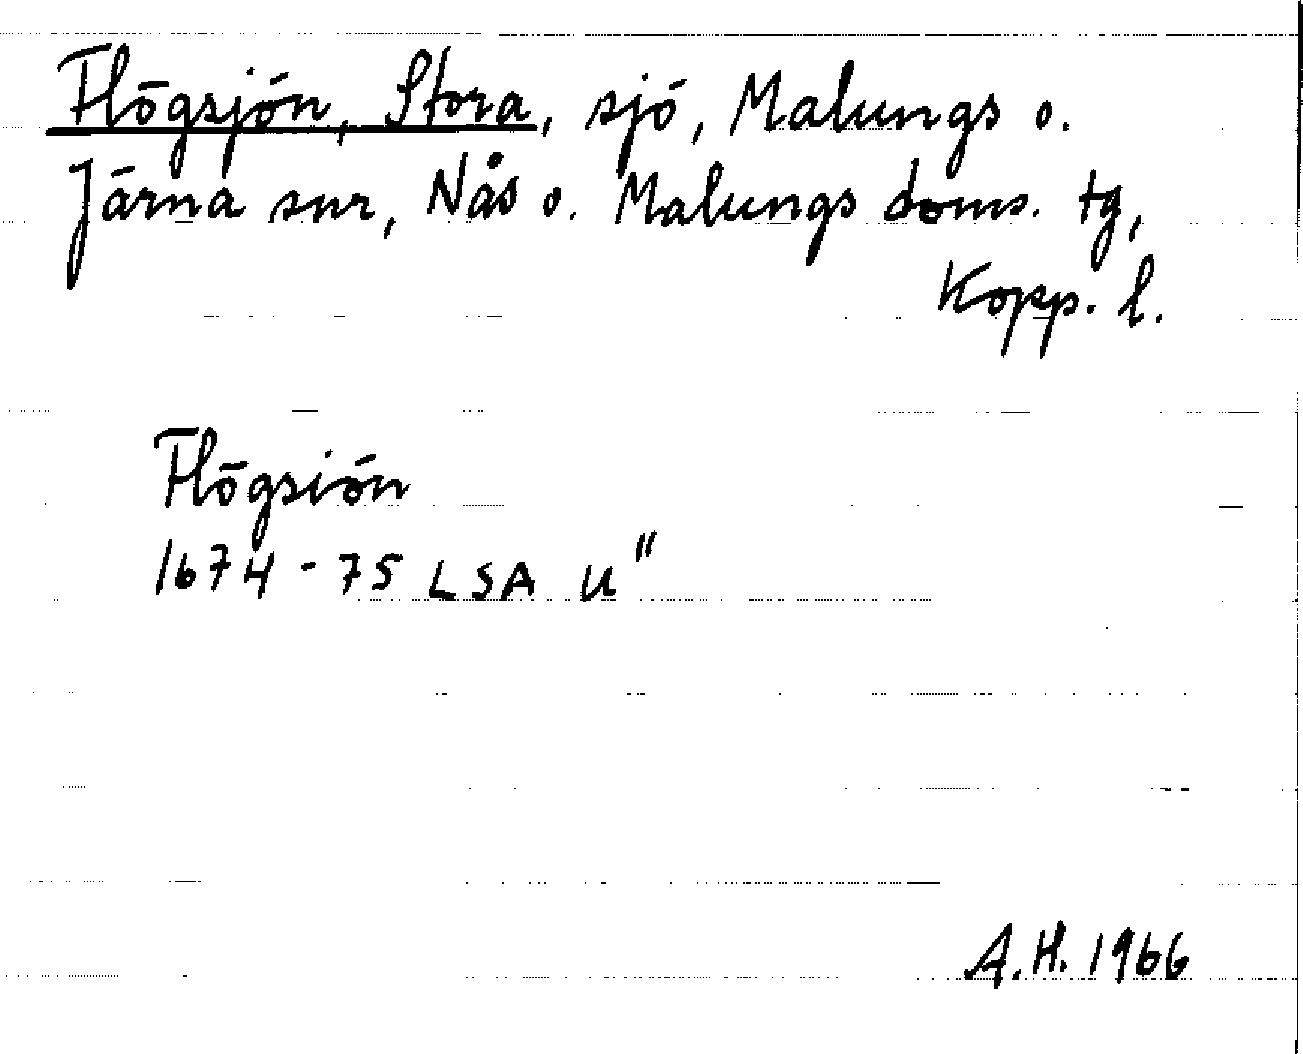 Flögsjön, Stora, sjö, Malungs o.
Järna snr, Nås o. Malungs doms. tg,
Kopp. l.
Flögsiön
1674-75 LSA U"
A.H. 1966